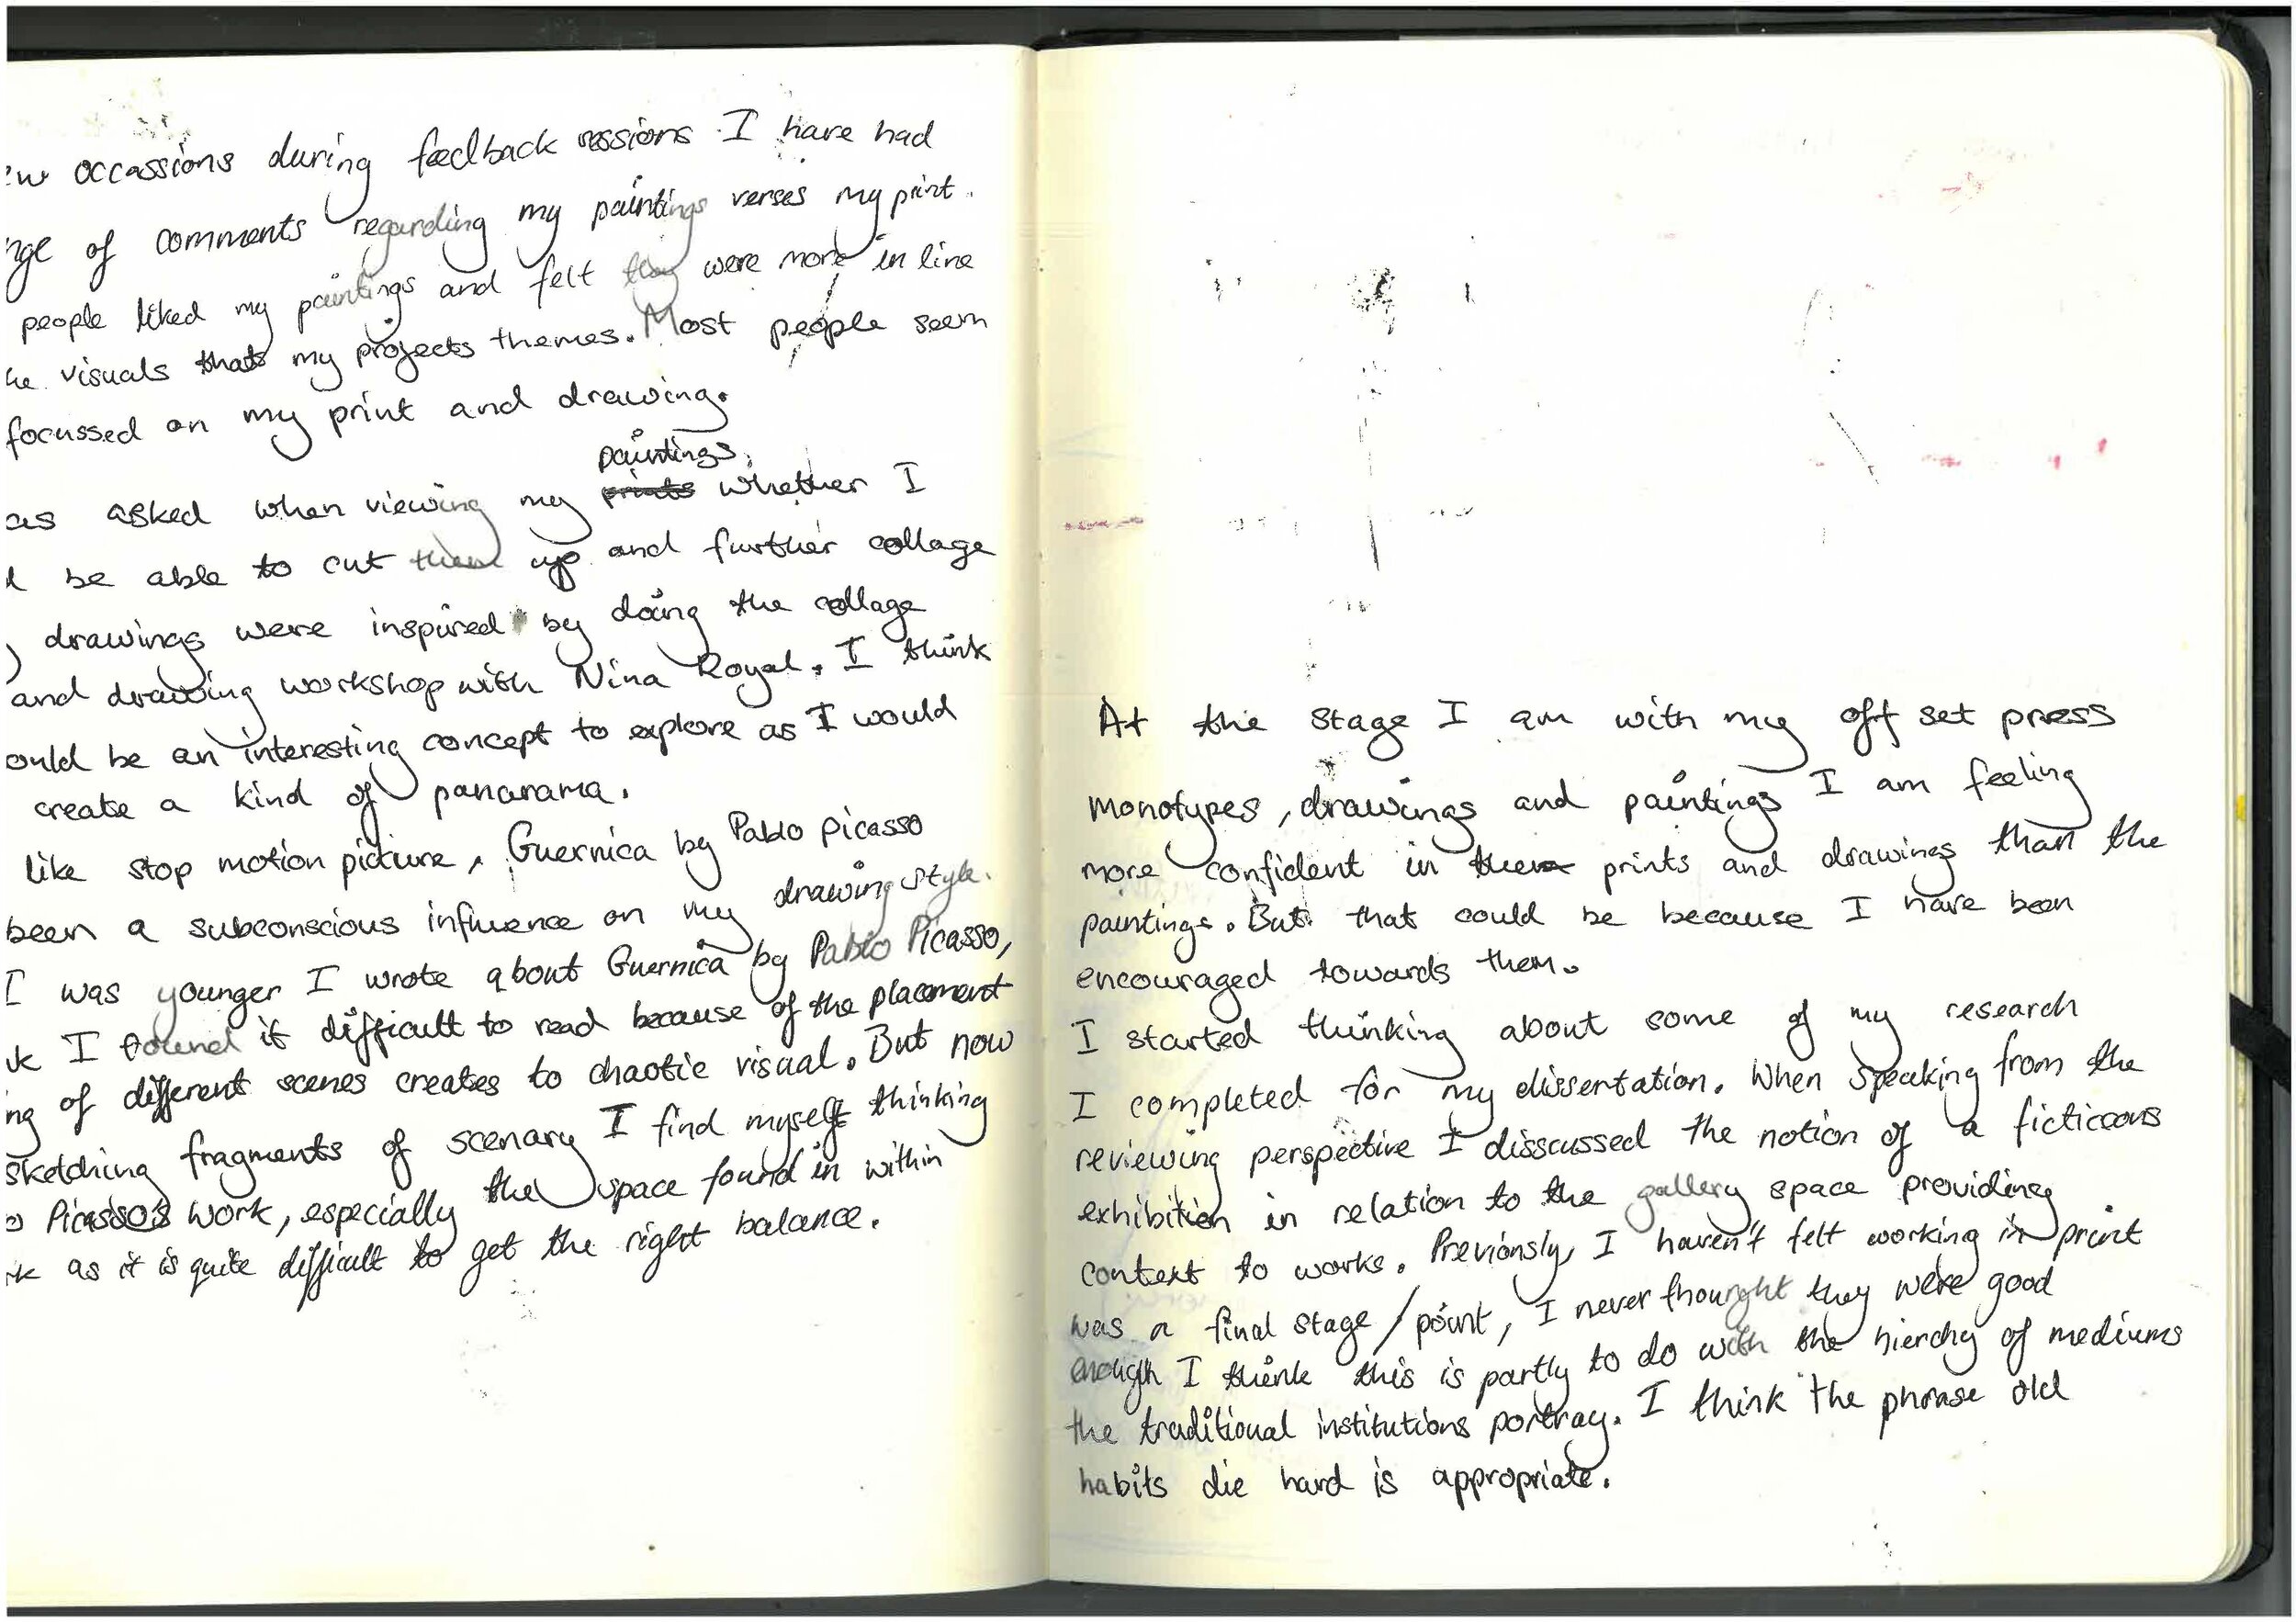 ew occassions during feedback sessions I have had
nge of comments regarding my paintings verses my print.
people liked my paintings and felt they were more in line
he visuals thats my projects themes. Most people seem
focussed on my print and drawing.
paintings.
as asked when viewing my prints whether I
d be able to cut them up and further collage
drawings were inspired by doing the collage
and drawing workshop with Nina Royal. I think
ould be an interesting concept to explore as I would
create a kind of panarama.
like stop motion picture, Guernica by Pablo picasso
been a subconscious influence on my drawing style.
I was younger I wrote about Guernica by Pablo Picasso,
k I found it difficult to read because of the placement
ng of different scenes creates to chaotic visual. But now
sketching fragments of scenary I find myself thinking
o Picasso's work, especially the space found in within
rk as it is quite difficult to get the right balance.
At the stage I am with my off set press
monotypes, drawings and paintings I am feeling
more confident in them prints and drawings than the
paintings. But that could be because I have been
encouraged towards them.
I started thinking about some of my research
I completed for my dissertation. When speaking from the
reviewing perspective I disscussed the notion of a ficticous
exhibition in relation to the gallery space providing
context to works. Previously, I haven't felt working in print
was a final stage/point, I never thought they were good
enough I think this is partly to do with the hierchy of mediums
the traditional institutions portray. I think the phrase old
habits die hard is appropriate.